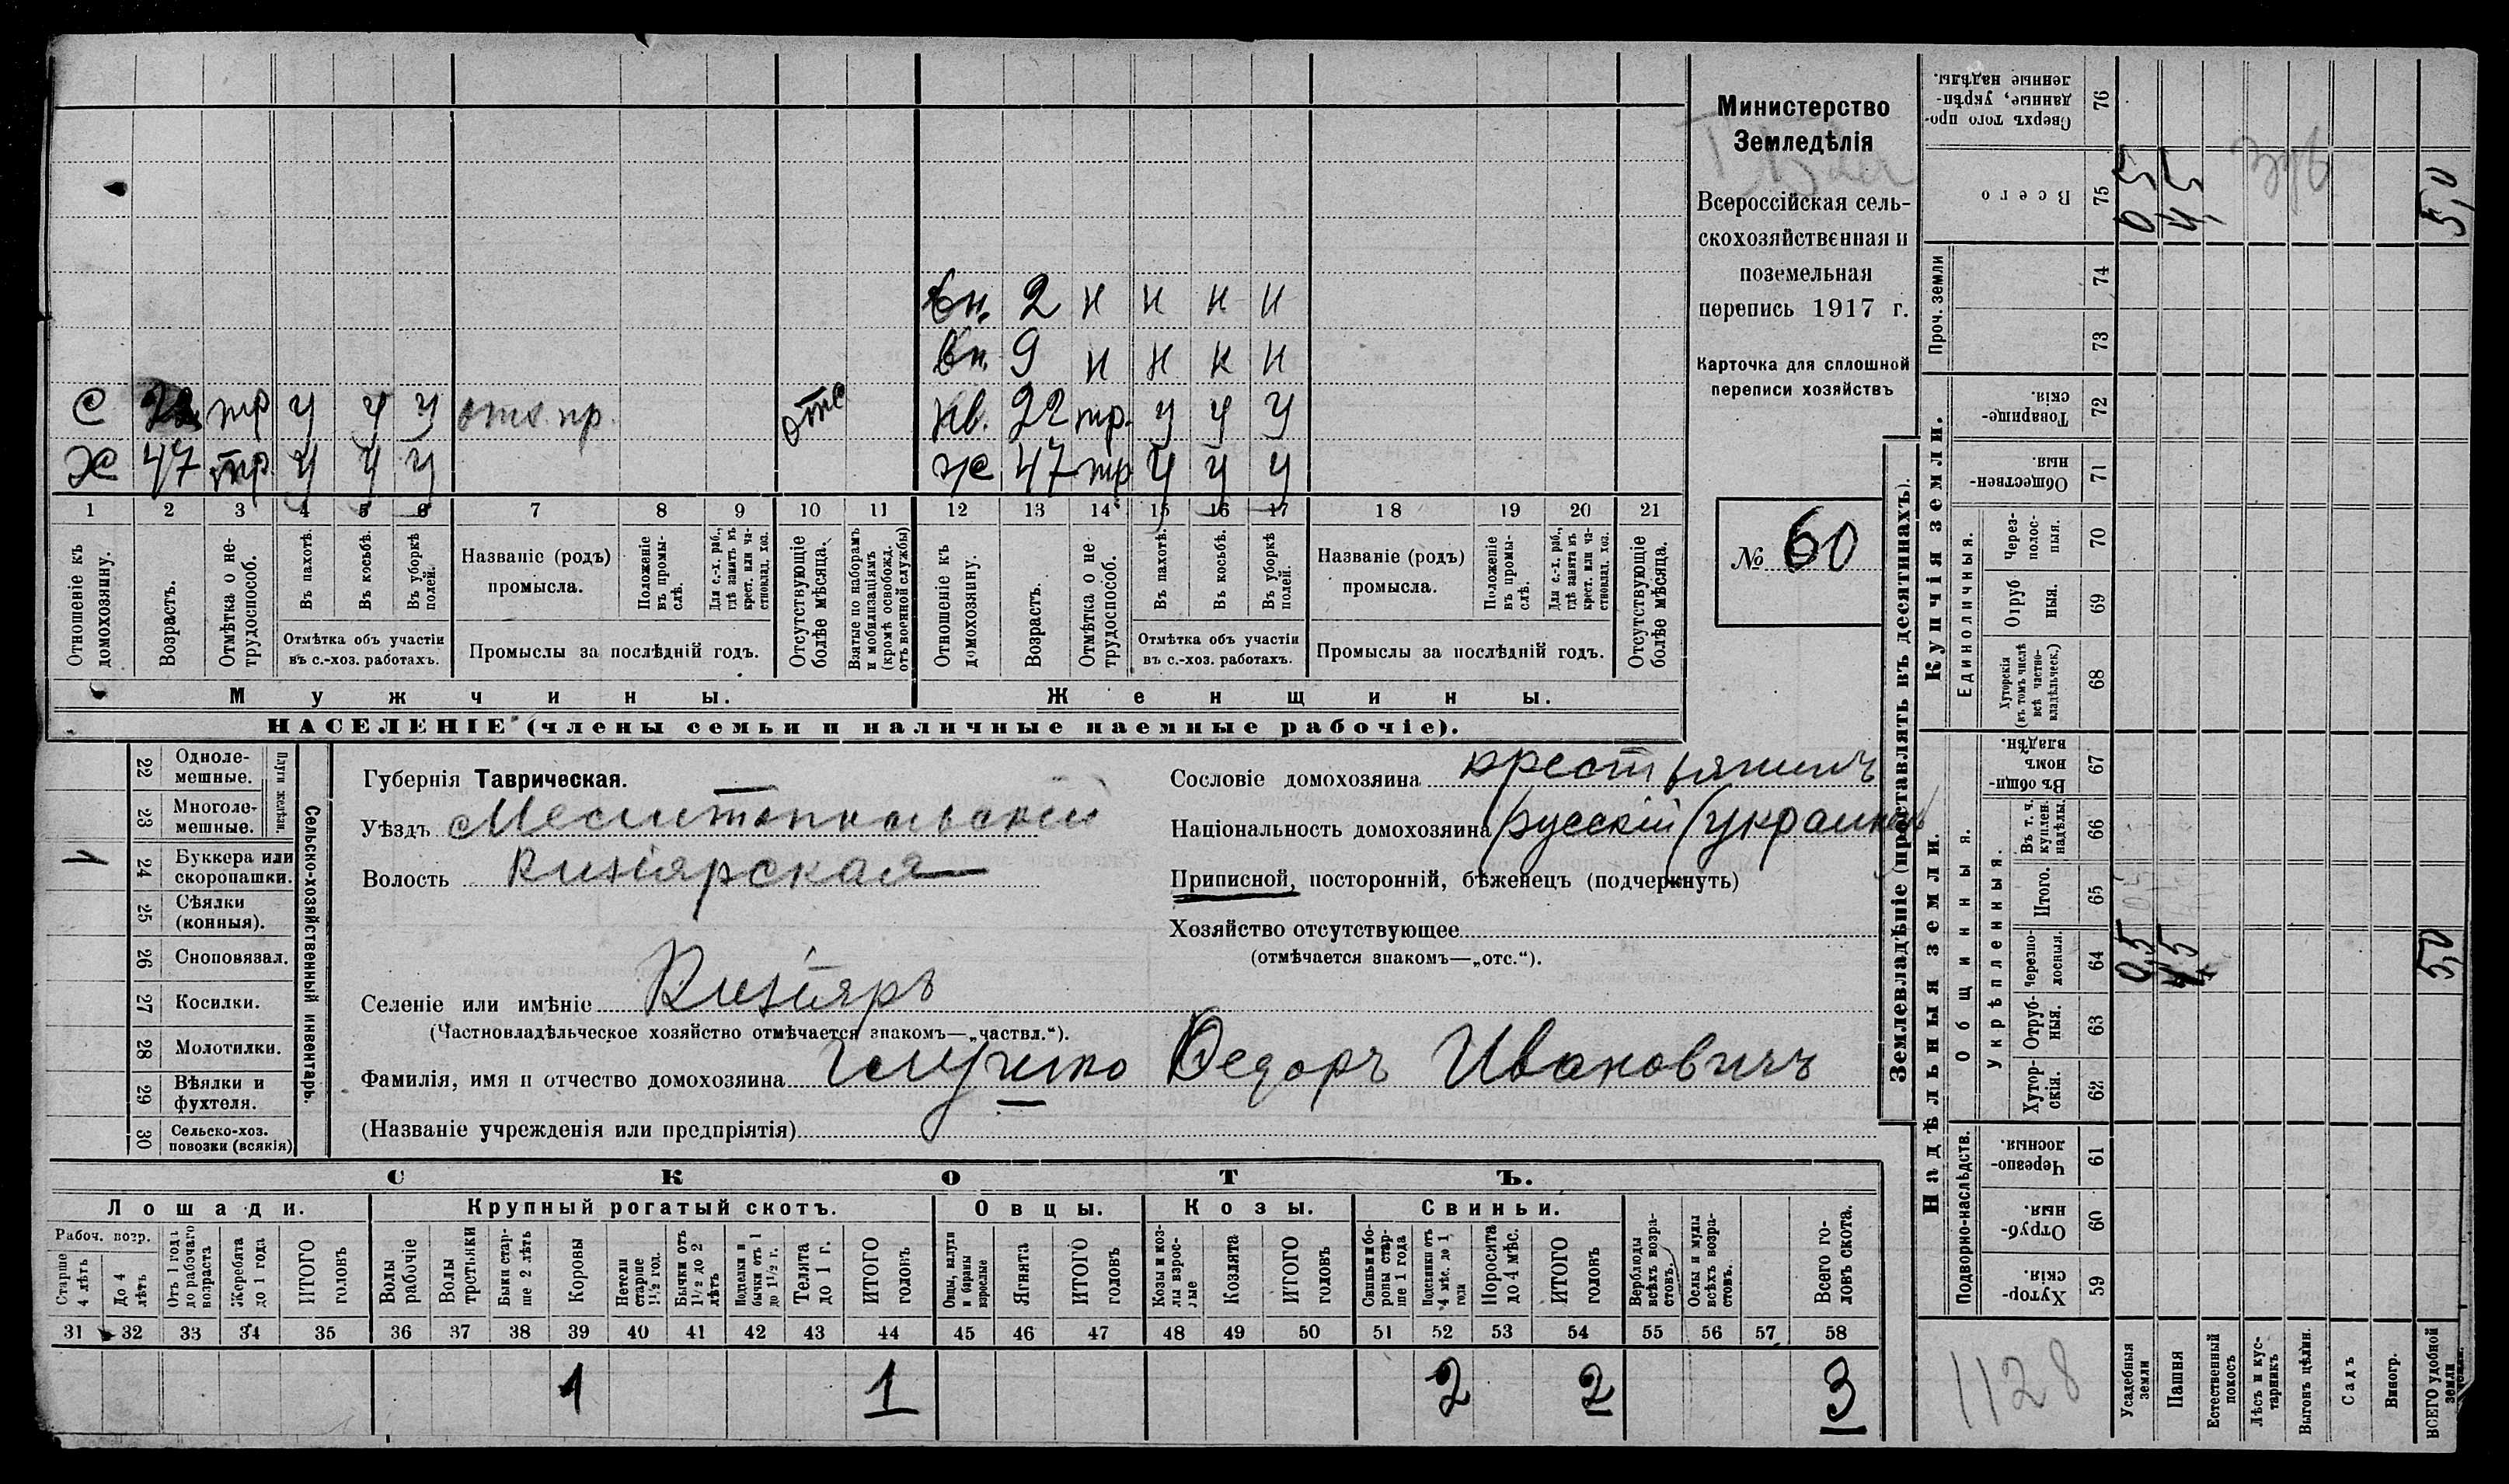 Министерство
Земледѣлія
Всероссійская сель-
скохозяйственная и
поземельная
перепись 1917 г.
Карточка для сплошной
переписи хозяйствъ
№ 60
вн. 2 н н н н
вн. 9 н н н н
С 22 тр у у у отх. пр. отс нв. 22 тр. у у у
Х 47 тр у у у ж 47 тр у у у
1 2 3 4 5 6 7 8 9 10 11 12 13 14 15 16 17 18 19 20 21
Отношеніе къ домохозяину.
Возрастъ.
Отмѣтка о не-трудоспособ.
Въ пахотѣ.
Въ косьбѣ.
Въ уборкѣ полей.
Отмѣтка объ участіи
въ с.-хоз. работахъ.
Названіе (родъ)
промысла.
Положеніе въ промы-слѣ.
Для с.-х. раб., гдѣ занятъ въ крест. или ча-стновлад. хоз.
Промыслы за послѣдній годъ.
Отсутствующіе болѣе мѣсяца.
Взятые по наборамъ и мобилизаціямъ (кромѣ освобожд. отъ военной службы)
Отношеніе къ домохозяину.
Возрастъ.
Отмѣтка о не трудоспособ.
Въ пахотѣ.
Въ косьбѣ.
Въ уборкѣ полей.
Отмѣтка объ участіи
въ с.-хоз. работахъ.
Названіе (родъ)
промысла.
Положеніе въ промы-слѣ.
Для с.-х. раб., гдѣ занятъ въ крест. или ча-стновлад. хоз.
Промыслы за послѣдній годъ.
Отсутствующіе болѣе мѣсяца.
Мужчины. Женщины.
НАСЕЛЕНІЕ (члены семьи и наличные наемные рабочіе).
Сельско-хозяйственный инвентарь.
Плуги желѣзн.
22 Одноле-мешные.
23 Многоле-мешные.
1 24 Буккера или скоропашки.
25 Сѣялки (конныя).
26 Сноповязал.
27 Косилки.
28 Молотилки.
29 Вѣялки и фухтеля.
30 Сельско-хоз. повозки (всякія)
Губернія Таврическая.
Уѣздъ Мелитопольскій
Волость Кизіярская
Селеніе или имѣніе Кизіяръ
(Частновладѣльческое хозяйство отмѣчается знакомъ—„частвл.“).
Фамилія, имя и отчество домохозяина Федоръ Ивановичъ
(Названіе учрежденія или предпріятія)
Сословіе домохозяина крестьянинъ
Національность домохозяина русскій (украин
Приписной, посторонній, бѣженецъ (подчеркнуть)
Хозяйство отсутствующее
(отмѣчается знакомъ—„отс.“).
СКОТЪ.
Лошади. Крупный рогатый скотъ. Овцы. Козы. Свиньи.
Рабоч. возр.
Старше 4 лѣтъ
До 4 лѣтъ
Отъ 1 года до рабочаго возраста
Жеребята до 1 года
ИТОГО головъ
Волы рабочіе
Волы третьяки
Быки стар-ше 2 лѣтъ
Коровы
Нетели старше 1½ год.
Бычки отъ 1½ до 2 лѣтъ
Подтелки и бычки отъ 1 до 1½ г.
Телята до 1 г.
ИТОГО головъ
Овцы, валухи и бараны взрослые
Ягнята
ИТОГО головъ
Козы и коз-лы взрос-лые
Козлята
ИТОГО головъ
Свиньи и бо-ровы стар-ше 1 года
Подсвинки отъ 4 мѣс. до 1 года
Поросята до 4 мѣс.
ИТОГО головъ
Верблюды всѣхъ возра-стовъ.
Ослы и мулы всѣхъ возра-стовъ.
Всего го-ловъ скота.
31 32 33 34 35 36 37 38 39 40 41 42 43 44 45 46 47 48 49 50 51 52 53 54 55 56 57 58
1 1 2 2 3
Землевладѣніе (проставлять въ десятинахъ).
Сверхъ того про-данные, укрѣп-ленные надѣлы. 76
Всего 75 0,5 4,5 5,0
Проч. земли 74
73
Купчія земли.
Товарище-скія. 72
Обществен-ныя. 71
Единоличныя.
Через-полос-ныя. 70
Отруб ныя. 69
Хуторскія (въ томъ числѣ всѣ частно-владѣльческ.) 68
Надѣльныя земли.
Общинныя.
Въ общи-номъ владѣн. 67
Укрѣпленныя.
Въ т. ч. куплен. надѣлы. 66
Итого. 65
Черезпо-лосныя. 64 0,5 4,5 5,0
Отруб-ныя. 63
Хутор-скія. 62
Подворно-наслѣдств.
Черезпо-лосныя. 61
Отруб-ныя. 60
Хутор-скія. 59
1128
Усадебныя земли
Пашня
Естественный покосъ
Лѣсъ и кус-тарникъ
Выгонъ цѣлин.
Садъ
Виногр.
ВСЕГО удобной земли